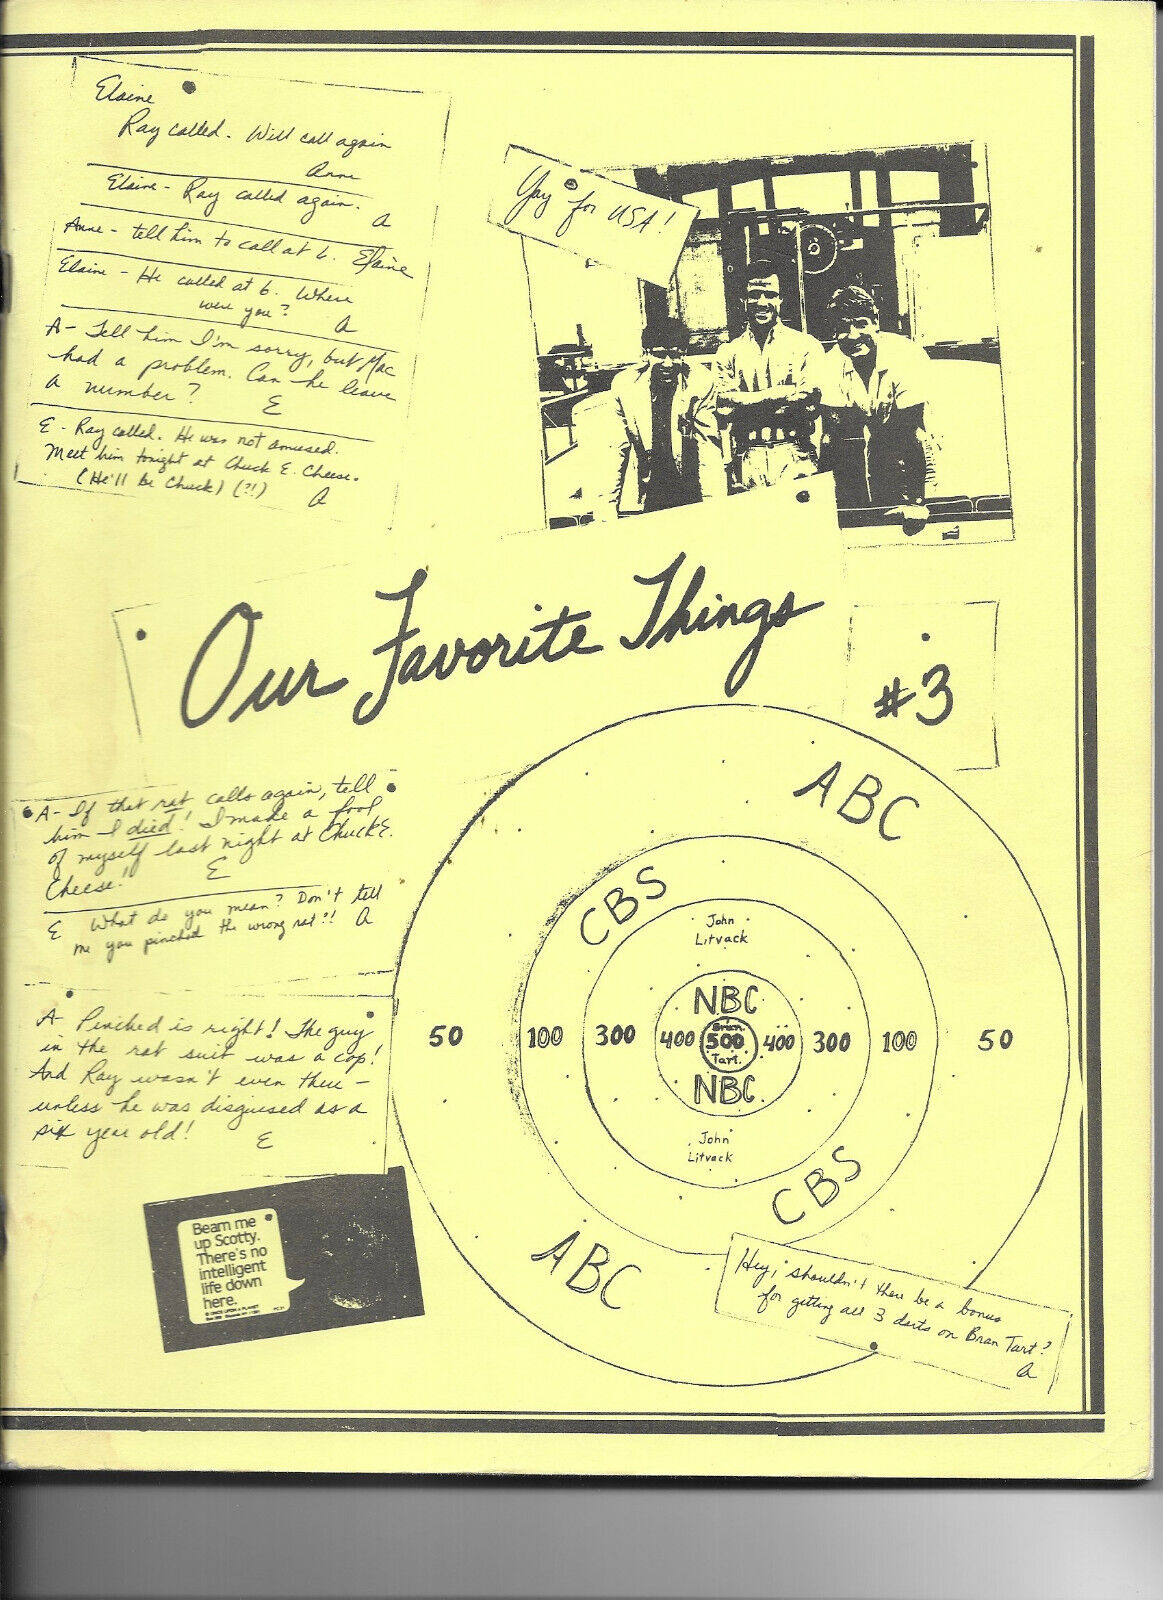 Elaine
Ray called. Will call again
Anne
Elaine - Ray called again.
A
Anne - tell him to call at 6. Elaine
Elaine - He called at 6. Where
were you? A
A - Tell him I'm sorry, but Mac
had a problem. Can he leave
a number? E
E - Ray called. He was not amused.
Meet him tonight at Chuck E. Cheese.
(He'll be Chuck) (?!)
A
Yay for USA!
Our Favorite Things
#3
A - If that rat calls again, tell
him I died! I made a fool
of myself last night at Chuck E.
Cheese! E
E What do you mean? Don't tell
me you pinched the wrong rat?!! A
A Pinched is right! The guy
in the rat suit was a cop!
And Ray wasn't even there -
unless he was disguised as a
six year old! E
Beam me
up Scotty.
There's no
intelligent
life down
here.
ABC
CBS
John
Litvack
NBC
50 100 300 400 Bran 500 Tart. 400 300 100 50
NBC
John
Litvack
CBS
ABC
Hey, shouldn't there be a bonus
for getting all 3 darts on Bran Tart?
A